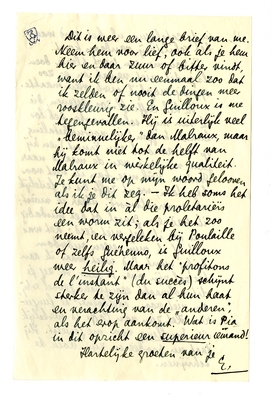 Dit is weer een lange brief van me.
Neem hem voor lief, ook als je hem
hier en daar zuur of bitter vindt,
want ik ben nu eenmaal zoo dat
ik zelden of nooit de dingen meer
rooskleurig zie. En Guilloux is me
tegengevallen. Hij is uiterlijk veel
"beminnelijker" dan Malraux, maar
hij komt niet tot de helft van
Malraux in werkelijke qualiteit.
Je kunt me op mijn woord gelooven
als ik je dit zeg. — Ik heb soms het
idee dat in àl die proletariërs
een worm zit; als je het zoo
neemt, en vergeleken bij Poulaille
of zelfs Guéhenno, is Guilloux
weer heilig. Maar het "profitons
de l'instant" (du succès) schijnt
sterker te zijn dan al hun haat
en verachting van de "anderen",
als het erop aankomt. Wat is Pia
in dit opzicht een superieur iemand!
Hartelijke groeten van je
E.